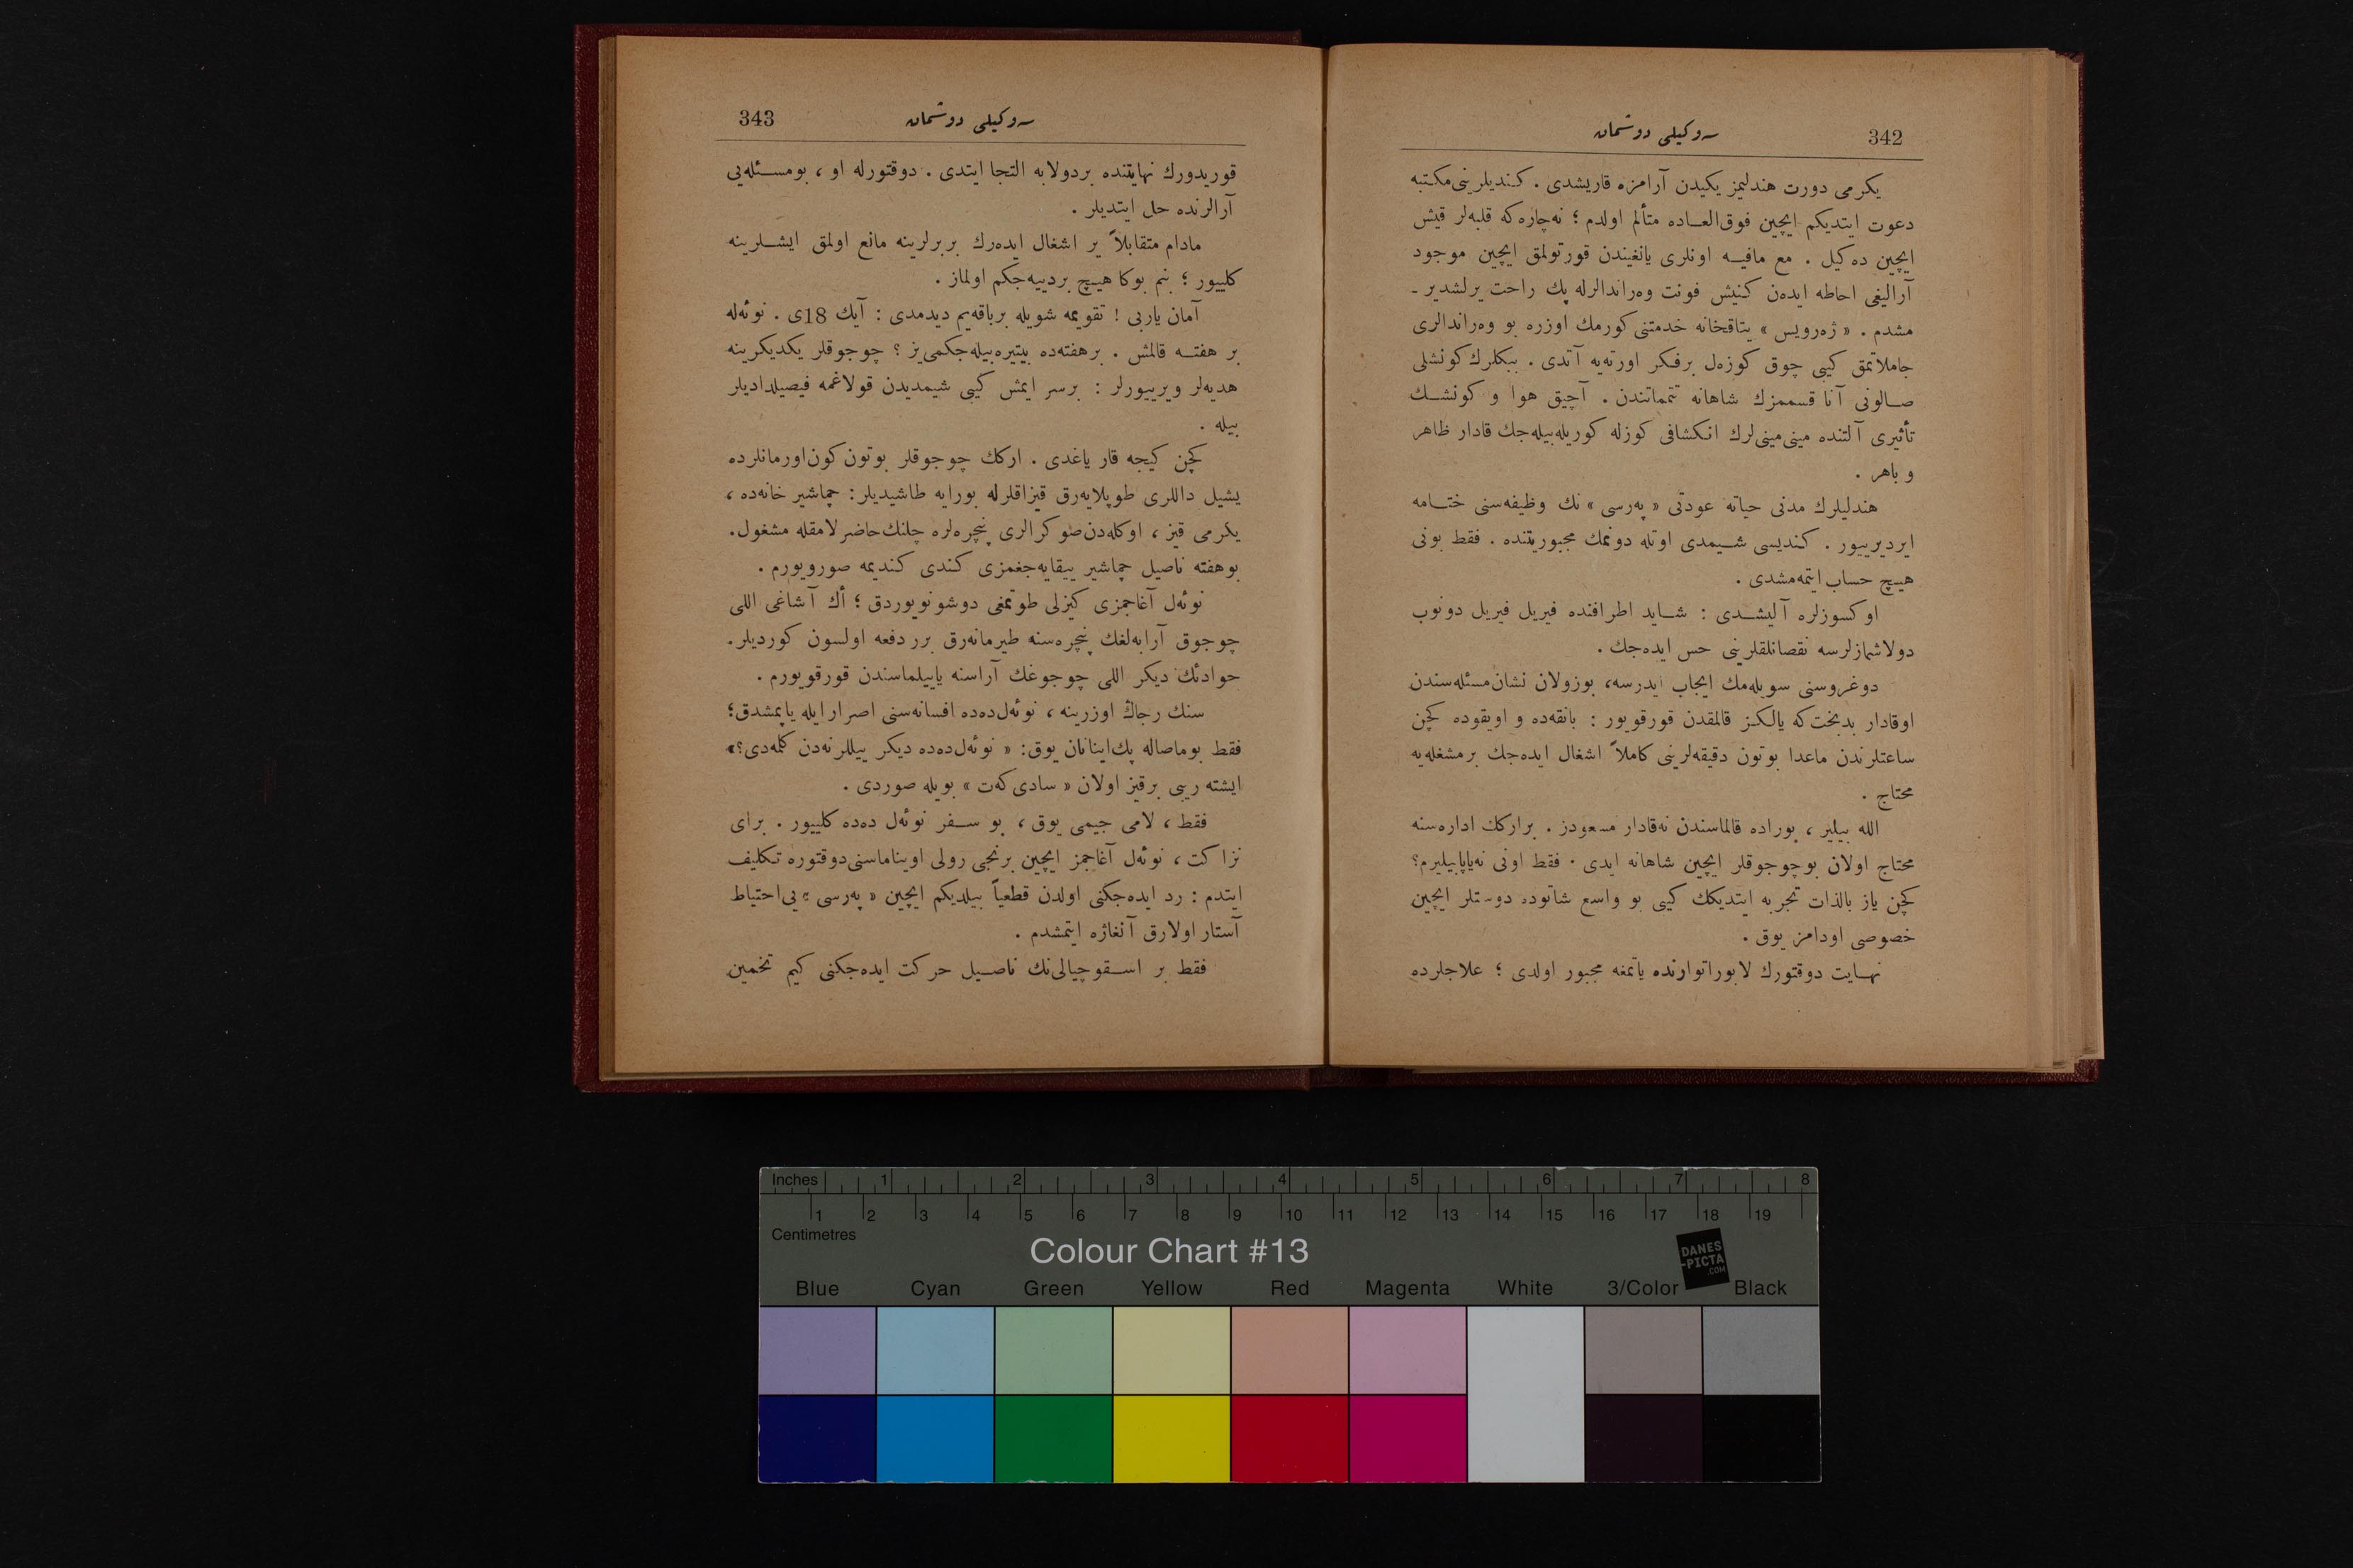 342
سه‌وكيلی دوشمان
يكرمی دورت هنديلمز يكيدن آرامزه قاريشدی . كنديلرينی مكتبه
دعوت ايتديكم ايچين فوق‌العاده متألم اولدم ؛ نه‌چاره كه قلبه‌لر قيش
ايچين ده‌كيل . مع مافيه اونلری يانغيندن قورتولمق ايچين موجود
آراليغی احاطه ايده‌ن كنيش فونت وه‌راندالرله پك راحت يرلشدير ـ
مشدم . « ژه‌رويس » يتاقخانه خدمتنی كورمك اوزره بو وه‌راندالری
جاملاتمق كيبی چوق كوزه‌ل برفكر اورته‌يه آتدی . ببكلرك كونشلی
صالونی آنا قسممزك شاهانه تتماتندن . آچيق هوا و كونشك
تأثيری آلتنده مينی‌مينی‌لرك انكشافی كوزله كوريله‌بيله‌جك قادار ظاهر
و باهر .
هنديلیلرك مدنی حياته عودتی « په‌رسی » نك وظيفه‌سنی ختامه
ايرديرييور . كنديسی شيمدی اوتله دونمك مجبوريتنده . فقط بونی
هيچ حساب ايتمه‌مشدی .
اوكسوزلره آليشدی : شايد اطرافنده فيريل فيريل دونوب
دولاشمازلرسه نقصانلقلرينی حس ايده‌جك .
دوغروسنی سويله‌مك ايجاب ايدرسه، بوزولان نشان‌مسئله‌سندن
اوقادار بدبخت‌كه يالكز قالمقدن قورقويور : بانقه‌ده و اويقوده كچن
ساعتلرندن ماعدا بوتون دقيقه‌لرينی كاملاً اشغال ايده‌جك برمشغله‌يه
محتاج .
الله بيلير ، بوراده قالماسندن نه‌قادار مسعودز . براركك اداره‌سنه
محتاج اولان بوچوجوقلر ايچين شاهانه ايدی . فقط اونی نه‌ياپابيليرم؟
كچن ياز بالذات تجربه ايتديكك كيبی بو واسع شاتوده دوستلر ايچين
خصوصی اودامز يوق .
نهايت دوقتورك لابوراتوارنده ياتمغه مجبور اولدی ؛ علاجلرده
343
سه‌وكيلی دوشمان
قوريدورك نهايتنده بردولابه التجا ايتدی . دوقتورله او ، بومسئله‌يی
آرالرنده حل ايتديلر .
مادام متقابلاً ير اشغال ايده‌رك بربرلرينه مانع اولمق ايشلرينه
كلييور ؛ بنم بوكا هيچ برديیه‌جكم اولماز .
آمان ياربی ! تقويمه شويله برباقه‌يم ديدمدی : آيك 18ی . نوئه‌له
بر هفته قالمش . برهفته‌ده بيتيره‌بيله‌جكمی‌يز ؟ چوجوقلر يكديكرينه
هديه‌لر ويرييورلر : برسر ايمش كيبی شيمديدن قولاغمه فيصيلداديلر
بيله .
كچن كيجه قار ياغدی . اركك چوجوقلر بوتون كون‌اورمانلرده
يشيل داللری طوپلايه‌رق قيزاقلرله بورايه طاشيديلر: چماشير خانه‌ده ،
يكرمی قيز ، اوكله‌دن‌صوكرالری پنچره‌لره چلنك‌حاضرلامقله مشغول.
بوهفته ناصيل چماشير ييقايه‌جغمزی كندی كنديمه صورويورم .
نوئه‌ل آغاجمزی كيزلی طوتمغی دوشونويوردق ؛ أك آشاغی اللی
چوجوق آرابه‌لغك پنچره‌سنه طيرمانه‌رق برر دفعه اولسون كورديلر.
حوادثك ديكر اللی چوجوغك آراسنه ياييلماسندن قورقويورم .
سنك رجاك اوزرينه ، نوئه‌ل‌ده‌ده افسانه‌سنی اصرار ايله ياپمشدق؛
فقط بوماصاله پك‌اينانان يوق: « نوئه‌ل‌ده‌ده ديكر ييللر نه‌دن كلمه‌دی؟»
ايشته ريبی برقيز اولان « سادی كه‌ت » بويله صوردی .
فقط ، لامی جيمی يوق ، بو سفر نوئه‌ل ده‌ده كلييور . برای
نزاكت ، نوئه‌ل آغاجمز ايچين برنجی رولی اويناماسنی‌دوقتوره تكليف
ايتدم : رد ايده‌جكنی اولدن قطعياً بيلديكم ايچين « په‌رسی » يی‌احتياط
آستار اولارق آنغاژه ايتمشدم .
فقط بر اسقوچيالی‌نك ناصيل حركت ايده‌جكنی كيم تخمين
Inches 1 2 3 4 5 6 7 8
1 2 3 4 5 6 7 8 9 10 11 12 13 14 15 16 17 18 19
Centimetres
Colour Chart #13
DANES
-PICTA
.COM
Blue Cyan Green Yellow Red Magenta White 3/Color Black